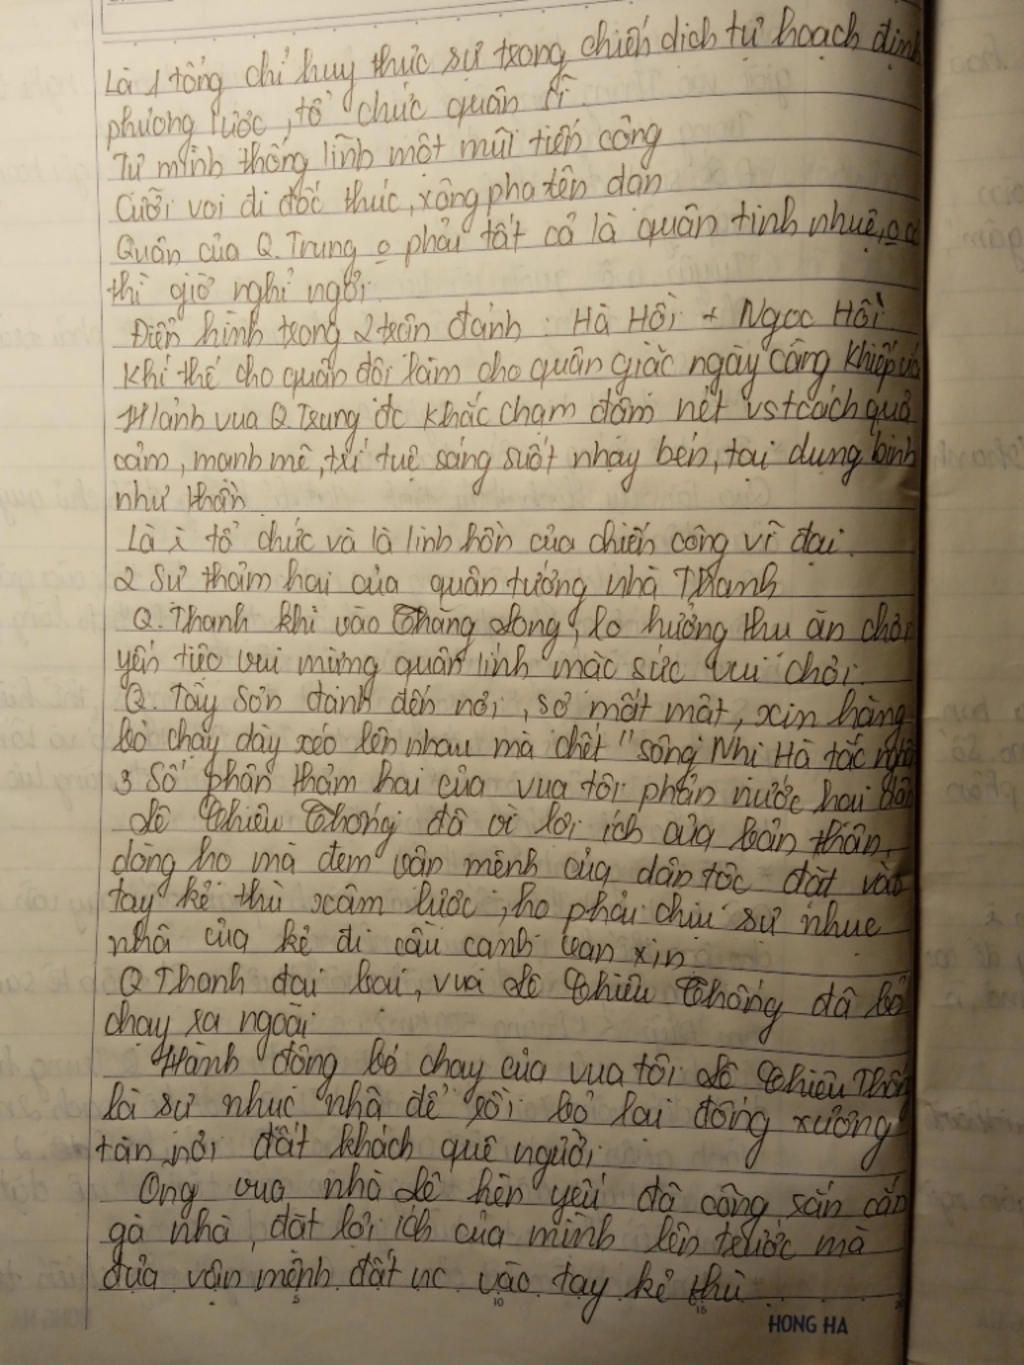 Là 1 tổng chỉ huy thực sự trong chiến dịch tự hoạch định
phương lược, tổ chức quân sĩ
Tự mình thống lĩnh một mũi tiến công
Cưỡi voi đi đốc thúc, xông pha tên đạn
Quân của Q. Trung o phải tất cả là quân tinh nhuệ, o có
thì giờ nghỉ ngơi
Điển hình trong 2 trận đánh: Hà Hồi + Ngọc Hồi
Khí thế cho quân đội làm cho quân giặc ngày càng khiếp
H/ảnh vua Q. Trung đc khắc chạm đậm nét vs t cách quả
cảm, mạnh mẽ, trí tuệ sáng suốt nhạy bén, tài dụng binh
như thần
Là i tổ chức và là linh hồn của chiến công vĩ đại.
2 Sự thảm hại của quân tướng nhà Thanh
Q. Thanh khi vào Thăng Long, lo hưởng thụ ăn chơi
yến tiệc vui mừng quân lính mặc sức vui chơi.
Q. Tây Sơn đánh đến nơi, sợ mất mật, xin hàng
bỏ chạy dày xéo lên nhau mà chết "sông Nhị Hà tắc nghẽn
3 Số phận thảm hại của vua tôi phản nước hại dân
Lê Chiêu Thống đã vì lợi ích của bản thân,
dòng họ mà đem vận mệnh của dân tộc đặt vào
tay kẻ thù xâm lược, họ phải chịu sự nhục
nhã của kẻ đi cầu cạnh van xin
Q Thanh đại bại, vua Lê Chiêu Thống đã bỏ
chạy ra ngoài
Hành động bỏ chạy của vua tôi Lê Chiêu Thống
là sự nhục nhã để rồi bỏ lại đống xương
tàn nơi đất khách quê người
Ông vua nhà Lê hèn yếu đã cõng rắn cắn
gà nhà, đặt lợi ích của mình lên trước mà
đưa vận mệnh đất nc vào tay kẻ thù
5 10 15
HONG HA